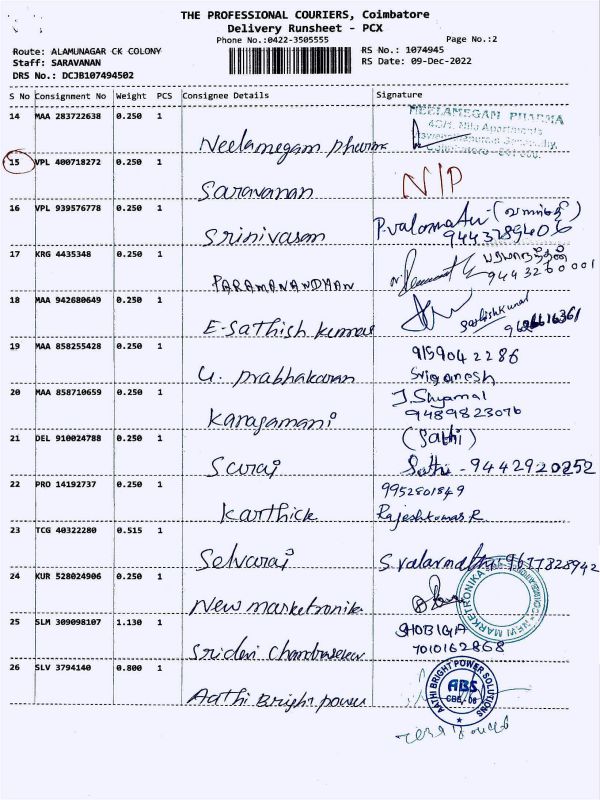 THE PROFESSIONAL COURIERS, Coimbatore
Delivery Runsheet - PCX
Phone No.:0422-3505555
Page No.:2
Route: ALAMUNAGAR CK COLONY
RS No.: 1074945
Staff: SARAVANAN
RS Date: 09-Dec-2022
DRS No.: DCJB107494502
S No Consignment No Weight PCS Consignee Details Signature
14 MAA 283722638 0.250 1
NEELAMEGAN PHARMA
Neelamegam pharma
15 VPL 400718272 0.250 1
Saravanan N/P
16 VPL 939576778 0.250 1
Srinivasan
9443289406
17 KRG 4435348 0.250 1
PARAMANANDHAN
9443260001
18 MAA 942680649 0.250 1
E-Sathish kumar
Sathishkumar
19 MAA 858255428 0.250 1
9159042286
U. prabhakaran Sriganesh
20 MAA 858710659 0.250 1
J. Shyamal
Karasamani 9489823076
21 DEL 910024788 0.250 1
(Sathi)
Suraj Sathi - 9442920252
22 PRO 14192737 0.250 1
9952801849
Karthick Rajeshkumar R
23 TCG 40322280 0.515 1
Selvaraj S. valarmathi 9677828942
24 KUR 528024906 0.250 1
New marketronik
NEW MARKETRONIKA
25 SLM 309098107 1.130 1
SHOBIGA
Sridevi Chandrasekar 7010162868
26 SLV 3794140 0.800 1
Aathi Bright power
AATHI BRIGHT POWER SOLUTIONS
ABS
CBE-06